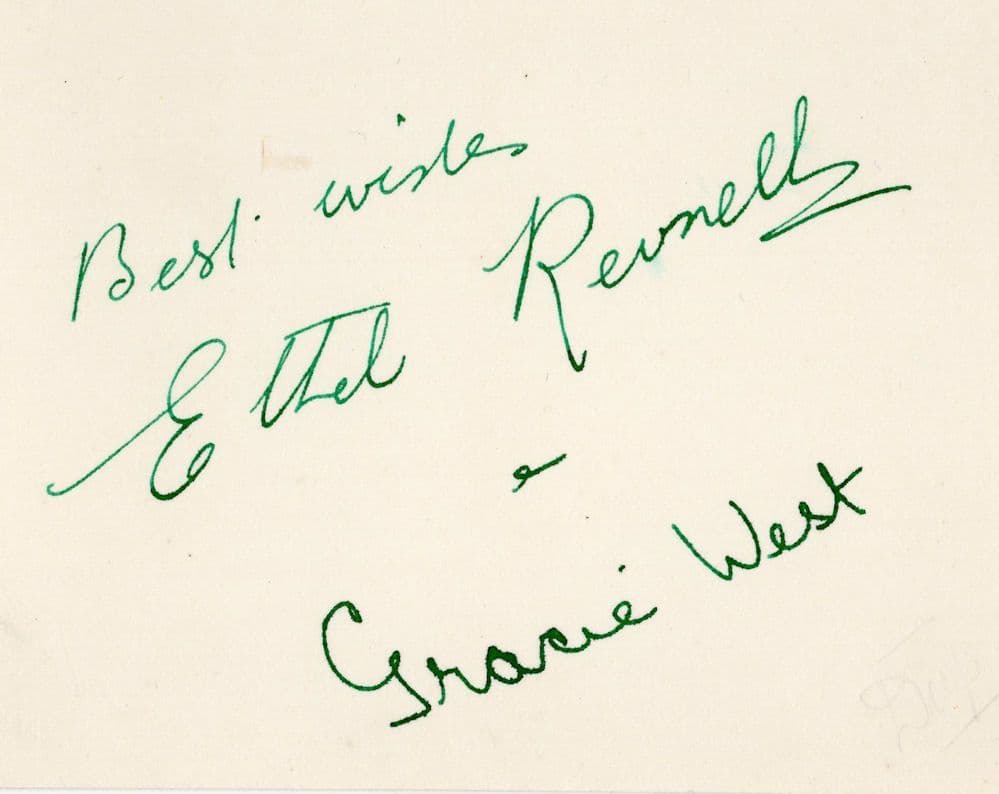 Best wishes
Ethel Revnell
&
Gracie West